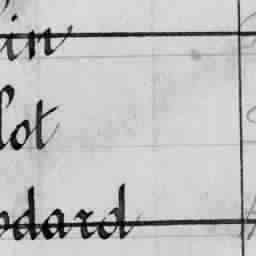 in
lot
odard